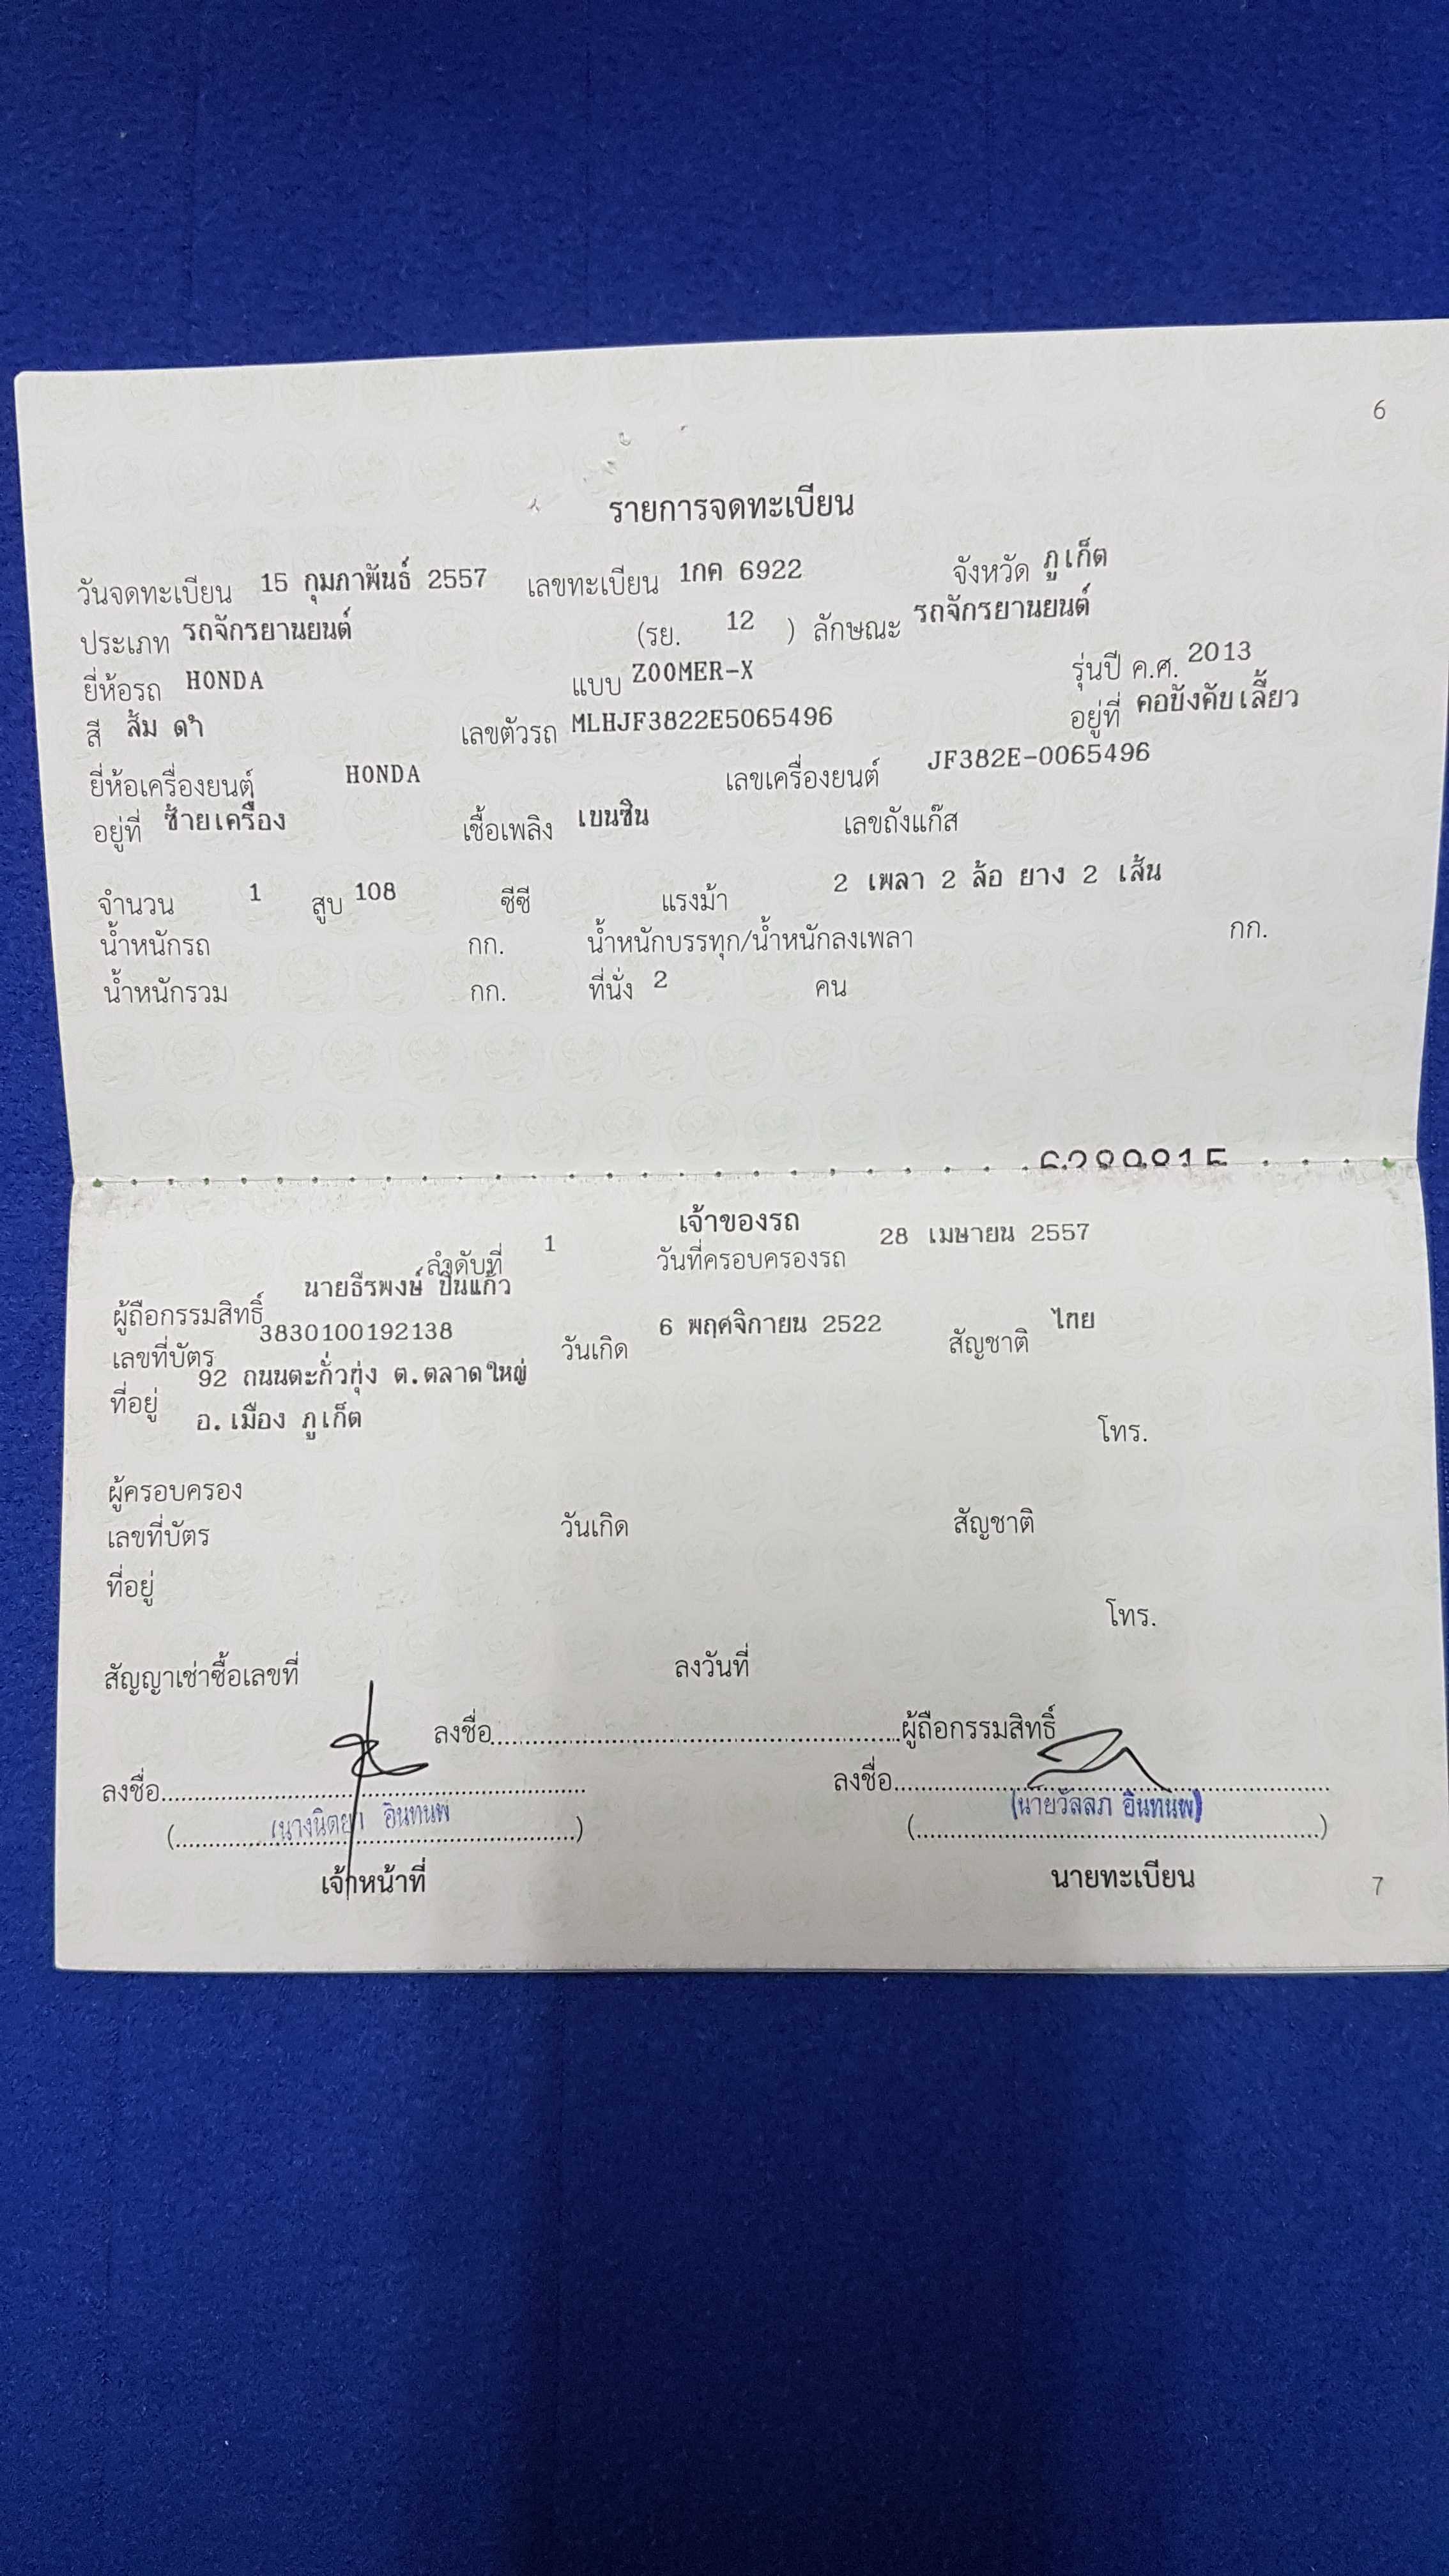 6
รายการจดทะเบียน
วันจดทะเบียน 15 กุมภาพันธ์ 2557 เลขทะเบียน 1กค 6922 จังหวัด ภูเก็ต
ประเภท รถจักรยานยนต์ (รย. 12 ) ลักษณะ รถจักรยานยนต์
ยี่ห้อรถ HONDA แบบ ZOOMER-X รุ่นปี ค.ศ. 2013
สี ส้ม ดำ เลขตัวรถ MLHJF3822E5065496 อยู่ที่ คอบังคับเลี้ยว
ยี่ห้อเครื่องยนต์ HONDA เลขเครื่องยนต์ JF382E-0065496
อยู่ที่ ซ้ายเครื่อง เชื้อเพลิง เบนซิน เลขถังแก๊ส
จำนวน 1 สูบ 108 ซีซี แรงม้า 2 เพลา 2 ล้อ ยาง 2 เส้น
น้ำหนักรถ กก. น้ำหนักบรรทุก/น้ำหนักลงเพลา กก.
น้ำหนักรวม กก. ที่นั่ง 2 คน
เจ้าของรถ
ลำดับที่ 1 วันที่ครอบครองรถ 28 เมษายน 2557
ผู้ถือกรรมสิทธิ์ นายธีรพงษ์ ปิ่นแก้ว
เลขที่บัตร 3830100192138 วันเกิด 6 พฤศจิกายน 2522 สัญชาติ ไทย
ที่อยู่ 92 ถนนตะกั่วทุ่ง ต.ตลาดใหญ่
อ.เมือง ภูเก็ต โทร.
ผู้ครอบครอง
เลขที่บัตร วันเกิด สัญชาติ
ที่อยู่
โทร.
สัญญาเช่าซื้อเลขที่ ลงวันที่
ลงชื่อ....................ผู้ถือกรรมสิทธิ์
ลงชื่อ.................... ลงชื่อ....................
(นางนิตยา อินทนพ) (นายวัลลภ อินทนพ)
เจ้าหน้าที่ นายทะเบียน
7